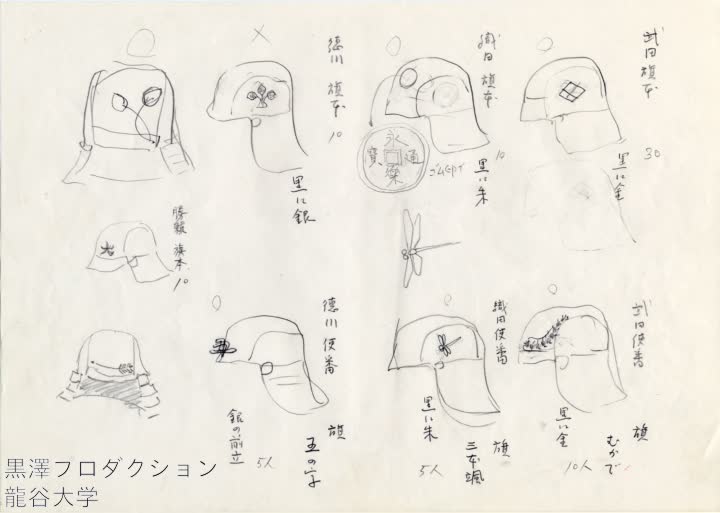 武田 旗本
30
黒に金
織田 旗本
10
黒に朱
永
通
寳
樂
徳川 旗本
10
黒に銀
勝頼 旗本
10
武田 使番
旗
むかで
黒に金
10人
織田 使番
旗
黒に朱
5人
徳川 使番
旗
五の字
銀の前立
5人
黒澤プロダクション
龍谷大学